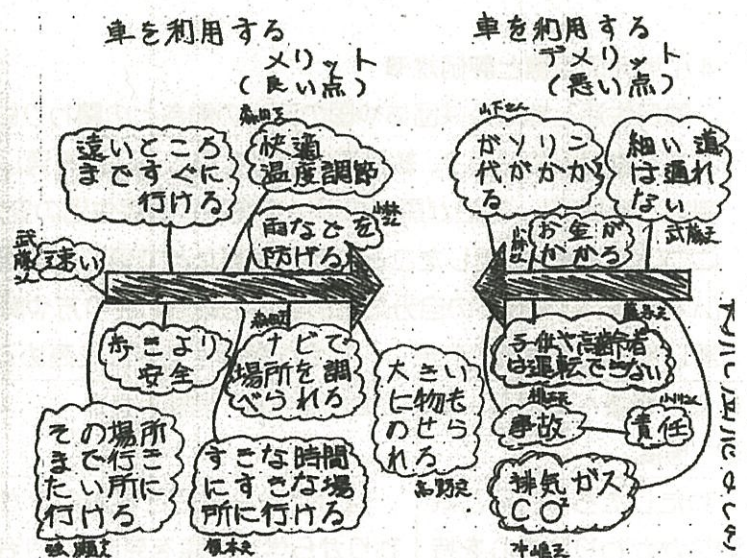 車を利用する
メリット
(良い点)
遠いところ
まですぐに
行ける
森田さん
快適
温度調節
雨などを
防げる
武藤さん
速い
歩きより
安全
森田さん
ナビで
場所を調
べられる
大きい
に物も
のせら
れる
高野さん
その場所
まで行き
たい所に
行ける
すきな時間
にすきな場
所に行ける
根本さん
車を利用する
デメリット
(悪い点)
山下さん
ガソリン
代がかか
る
細い道
は通れ
ない
武藤さん
お金が
かかる
子供や高齢者
は運転できない
事故
責任
排気ガス
CO²
沖嶋さん